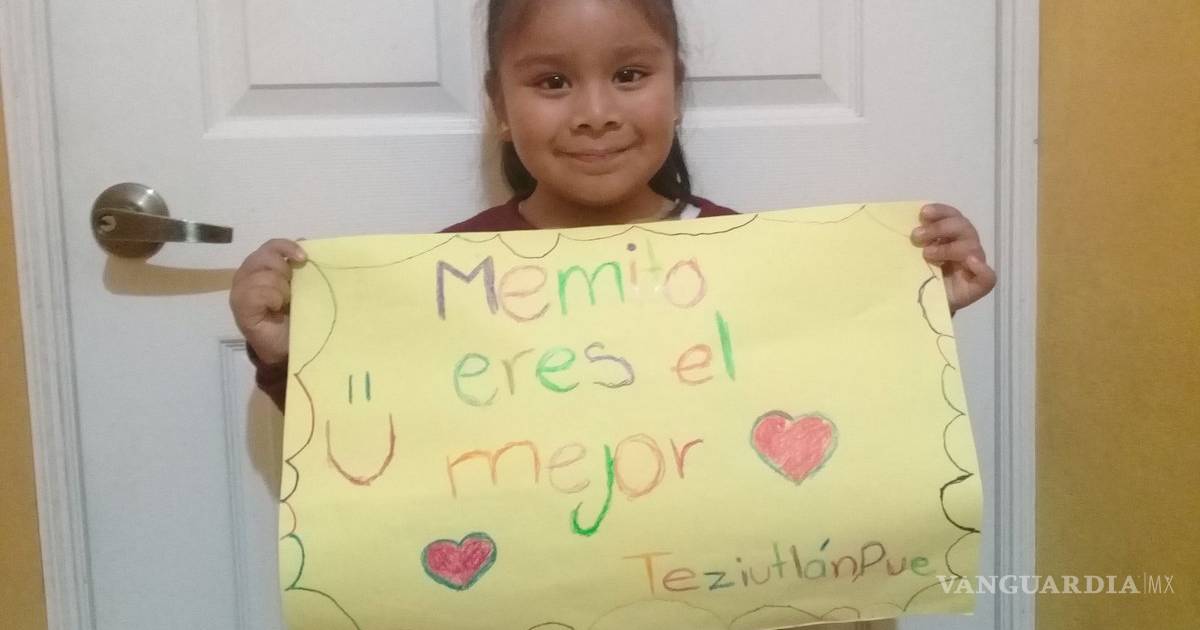 Memito
eres el
mejor
Teziutlán,Pue.
VANGUARDIA|MX